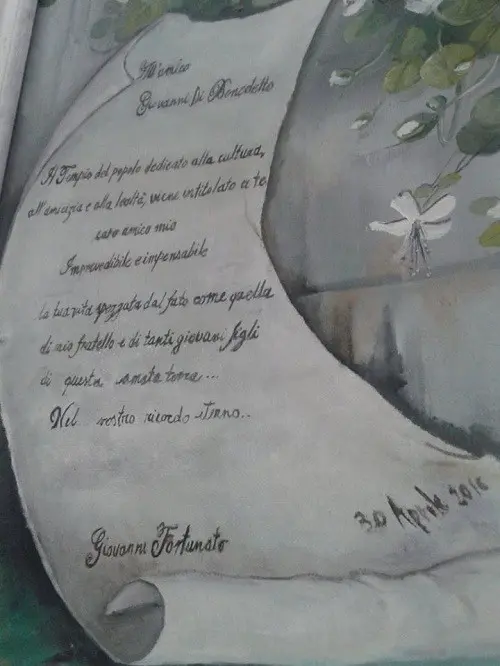 All'amico
Giovanni Di Benedetto
Il Tempio del popolo dedicato alla cultura,
all'amicizia e alla lealtà, viene intitolato a te
caro amico mio
Imprendibile e impensabile
la tua vita spezzata dal fato come quella
di mio fratello e di tanti giovani figli
di questa amata terra...
Nel nostro ricordo eterno..
30 Aprile 2016
Giovanni Fortunato